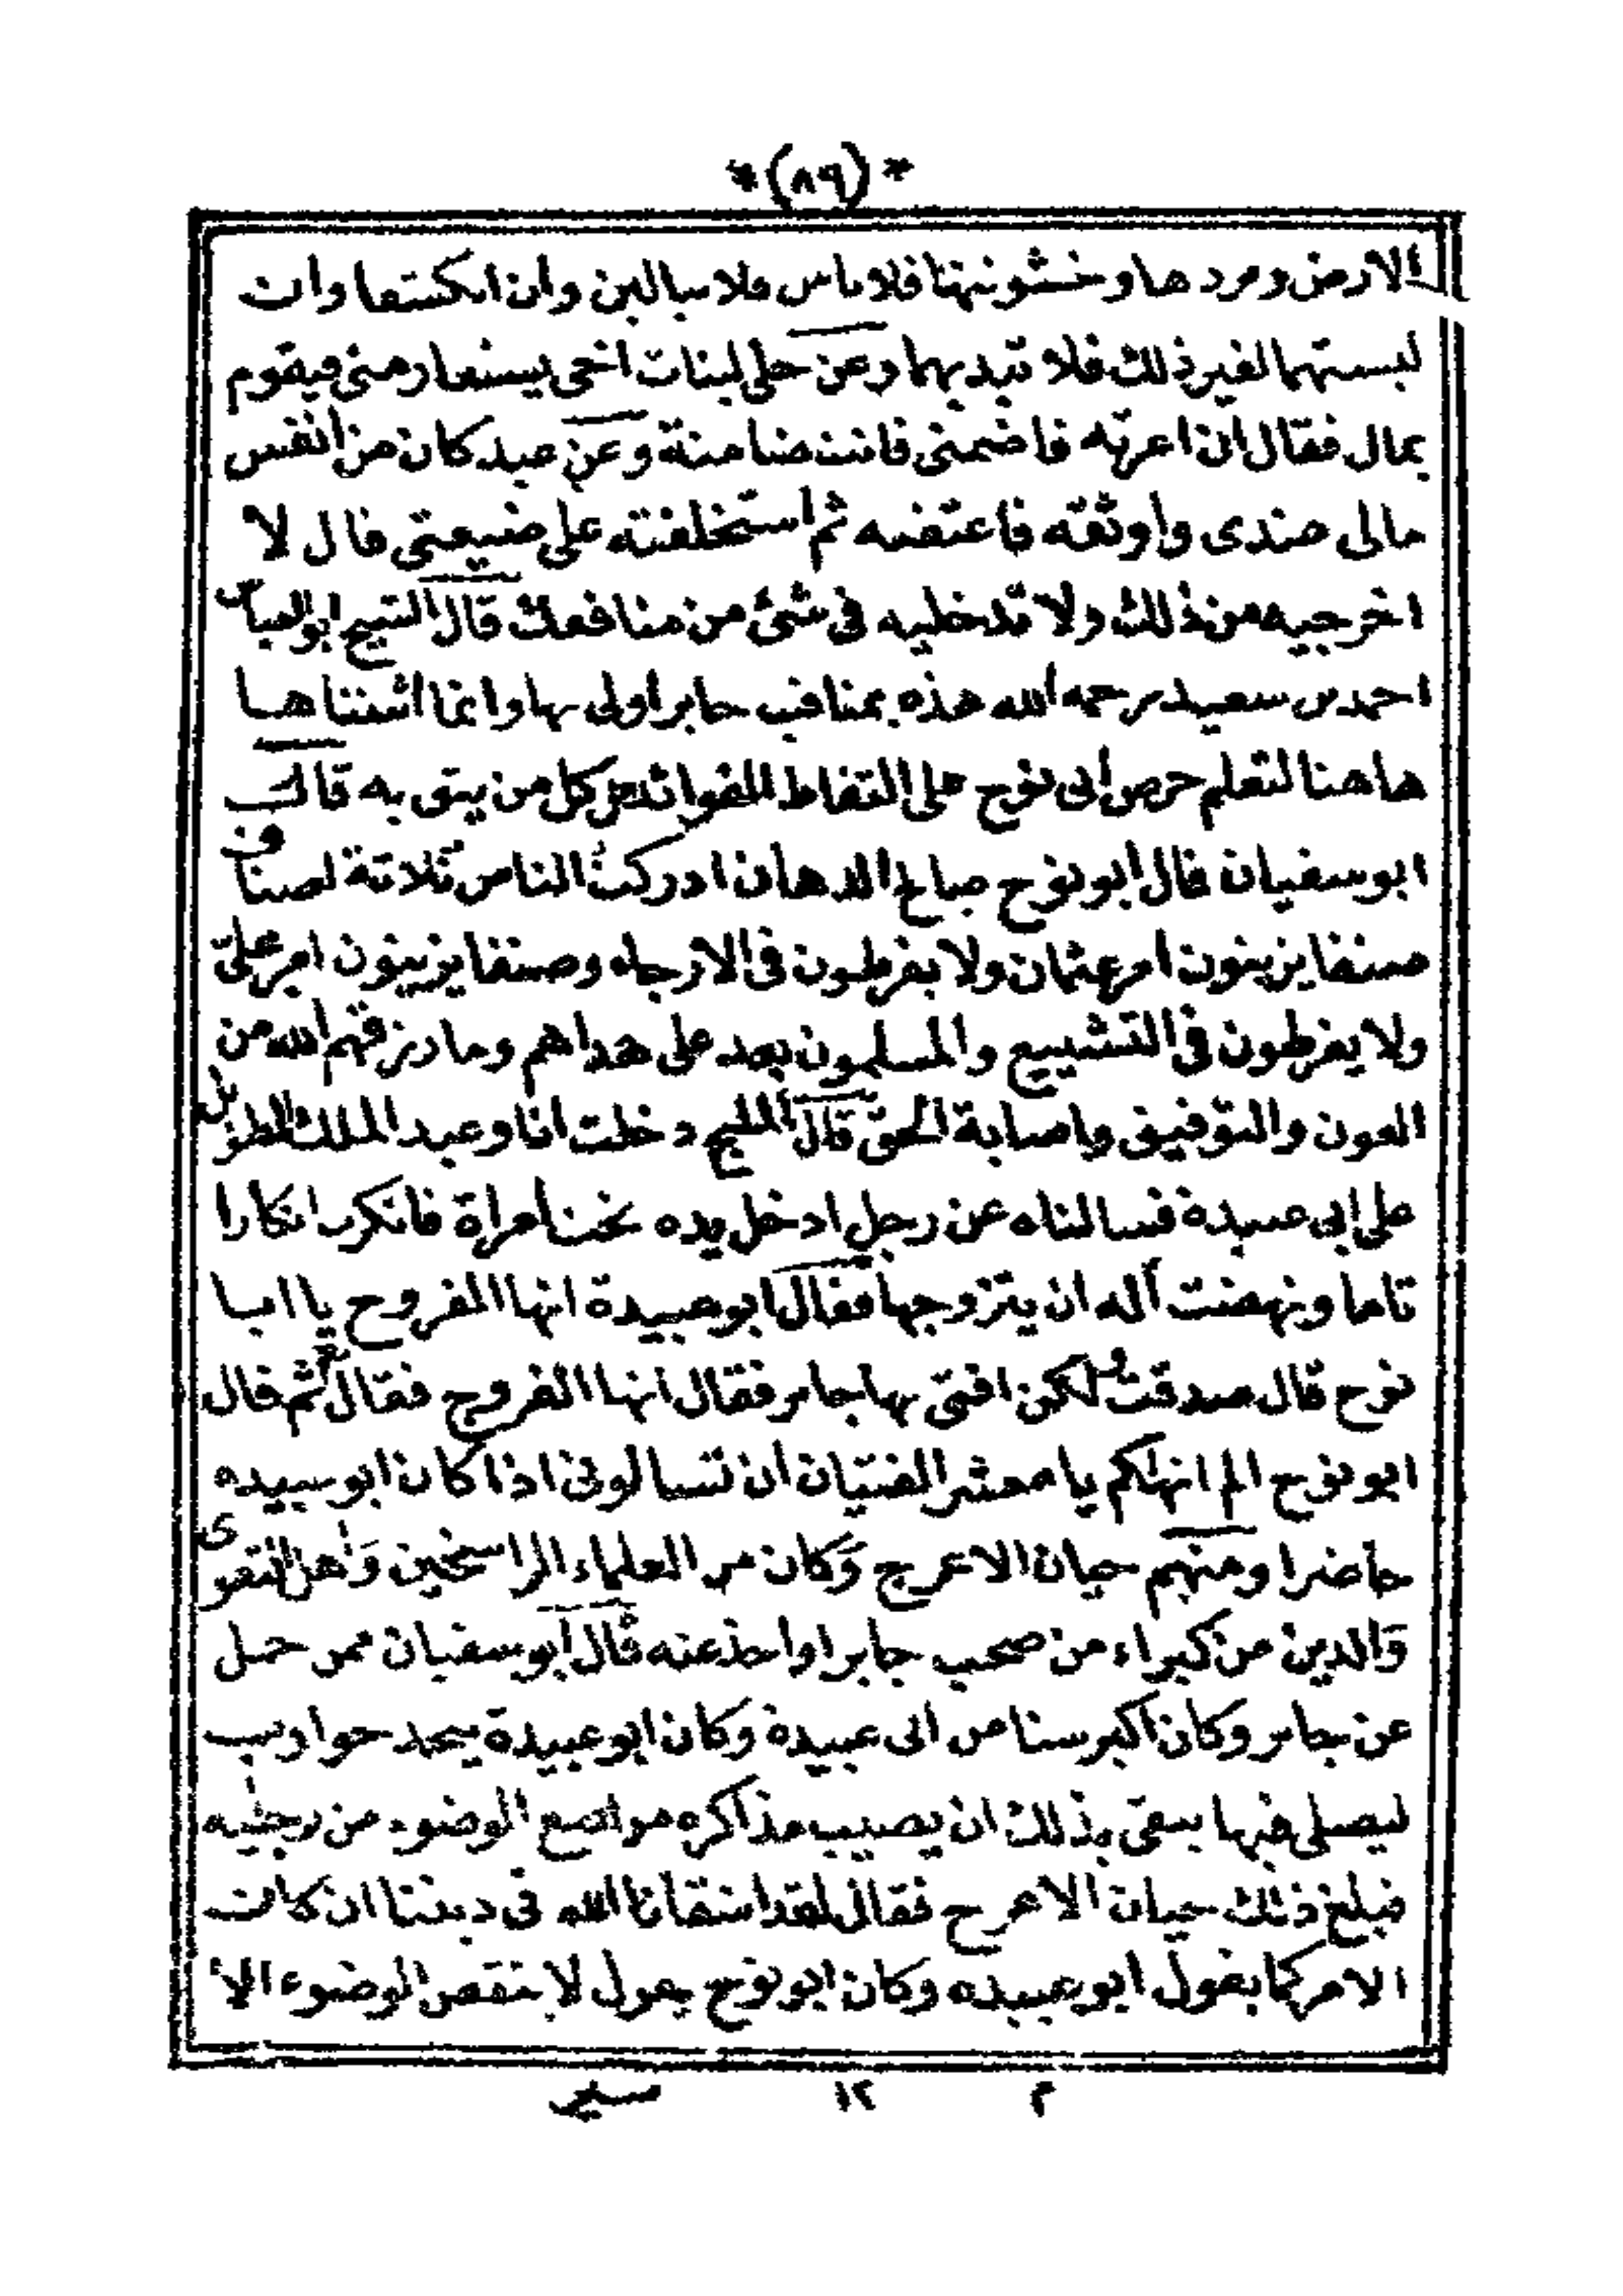 *(٨٩)*
الارض وبردها وخشونتها فلا باس فلا تبالين وان انكشفا وان
لبستهما لغير ذلك فلا تبديهما وعن حلى لبنات اخى يستعار منى فيقوم
بمال فقال ان اعرته فاضمنى فانت ضامنة وعن عبد كان من انفس
مالى عندى واوثقه فاعتقته ثم استخلفته على ضيعتى قال لا
اخرجيه من ذلك ولا تدخليه فى شئ من منافعك قال الشيخ ابو العباس
احمد بن سعيد رحمه الله هذه بمناقب جابر أولى بها وانما اثبتناها
هاهنا لتعلم حرص ابى نوح على التقاط الفوائد من كل من يثق به قال
ابو سفيان قال ابو نوح صالح الدهان ادركت الناس ثلاثة اصناف
صنفا يزينون امر عثمان ولا يفرطون فى الارجاء وصنفا يزينون امر على
ولا يفرطون فى التشييع والمسلمون بعد على هداهم وما رزقهم الله من
العون والتوفيق واصابة الحق قال المليح دخلت انا وعبد الملك الطويل
على ابى عبيدة فسالناه عن رجل ادخل يده تحت امراة فانكر انكارا
تاما ونهضت أله ان يتزوجها فقال ابو عبيدة انها الفروج يا ابا
نوح قال صدقت ولكن افتى بها جابر فقال انها الفروج فقال نعم ثم قال
ابو نوح الم انهاكم يا معشر الفتيان ان تسالونى اذا كان ابو عبيده
حاضرا ومنهم حيان الاعرج وكان من العلماء الراسخين وأهل التقوى
والدين من كبراء من صحب جابرا واخذ عنه قال ابو سفيان ممن حمل
عن جابر وكان اكبر سنا من ابى عبيدة وكان ابو عبيدة يتخذ جواريب
ليصلى فيها يتقى بذلك ان يصيب مذاكره مواضع الوضوء من رجليه
فبلغ ذلك حيان الاعرج فقال لقد اشقانا الله فى ديننا ان كان
الامر كما يقول ابو عبيده وكان ابو نوح يقول لا ينقض الوضوء الا
م ١٢ سير